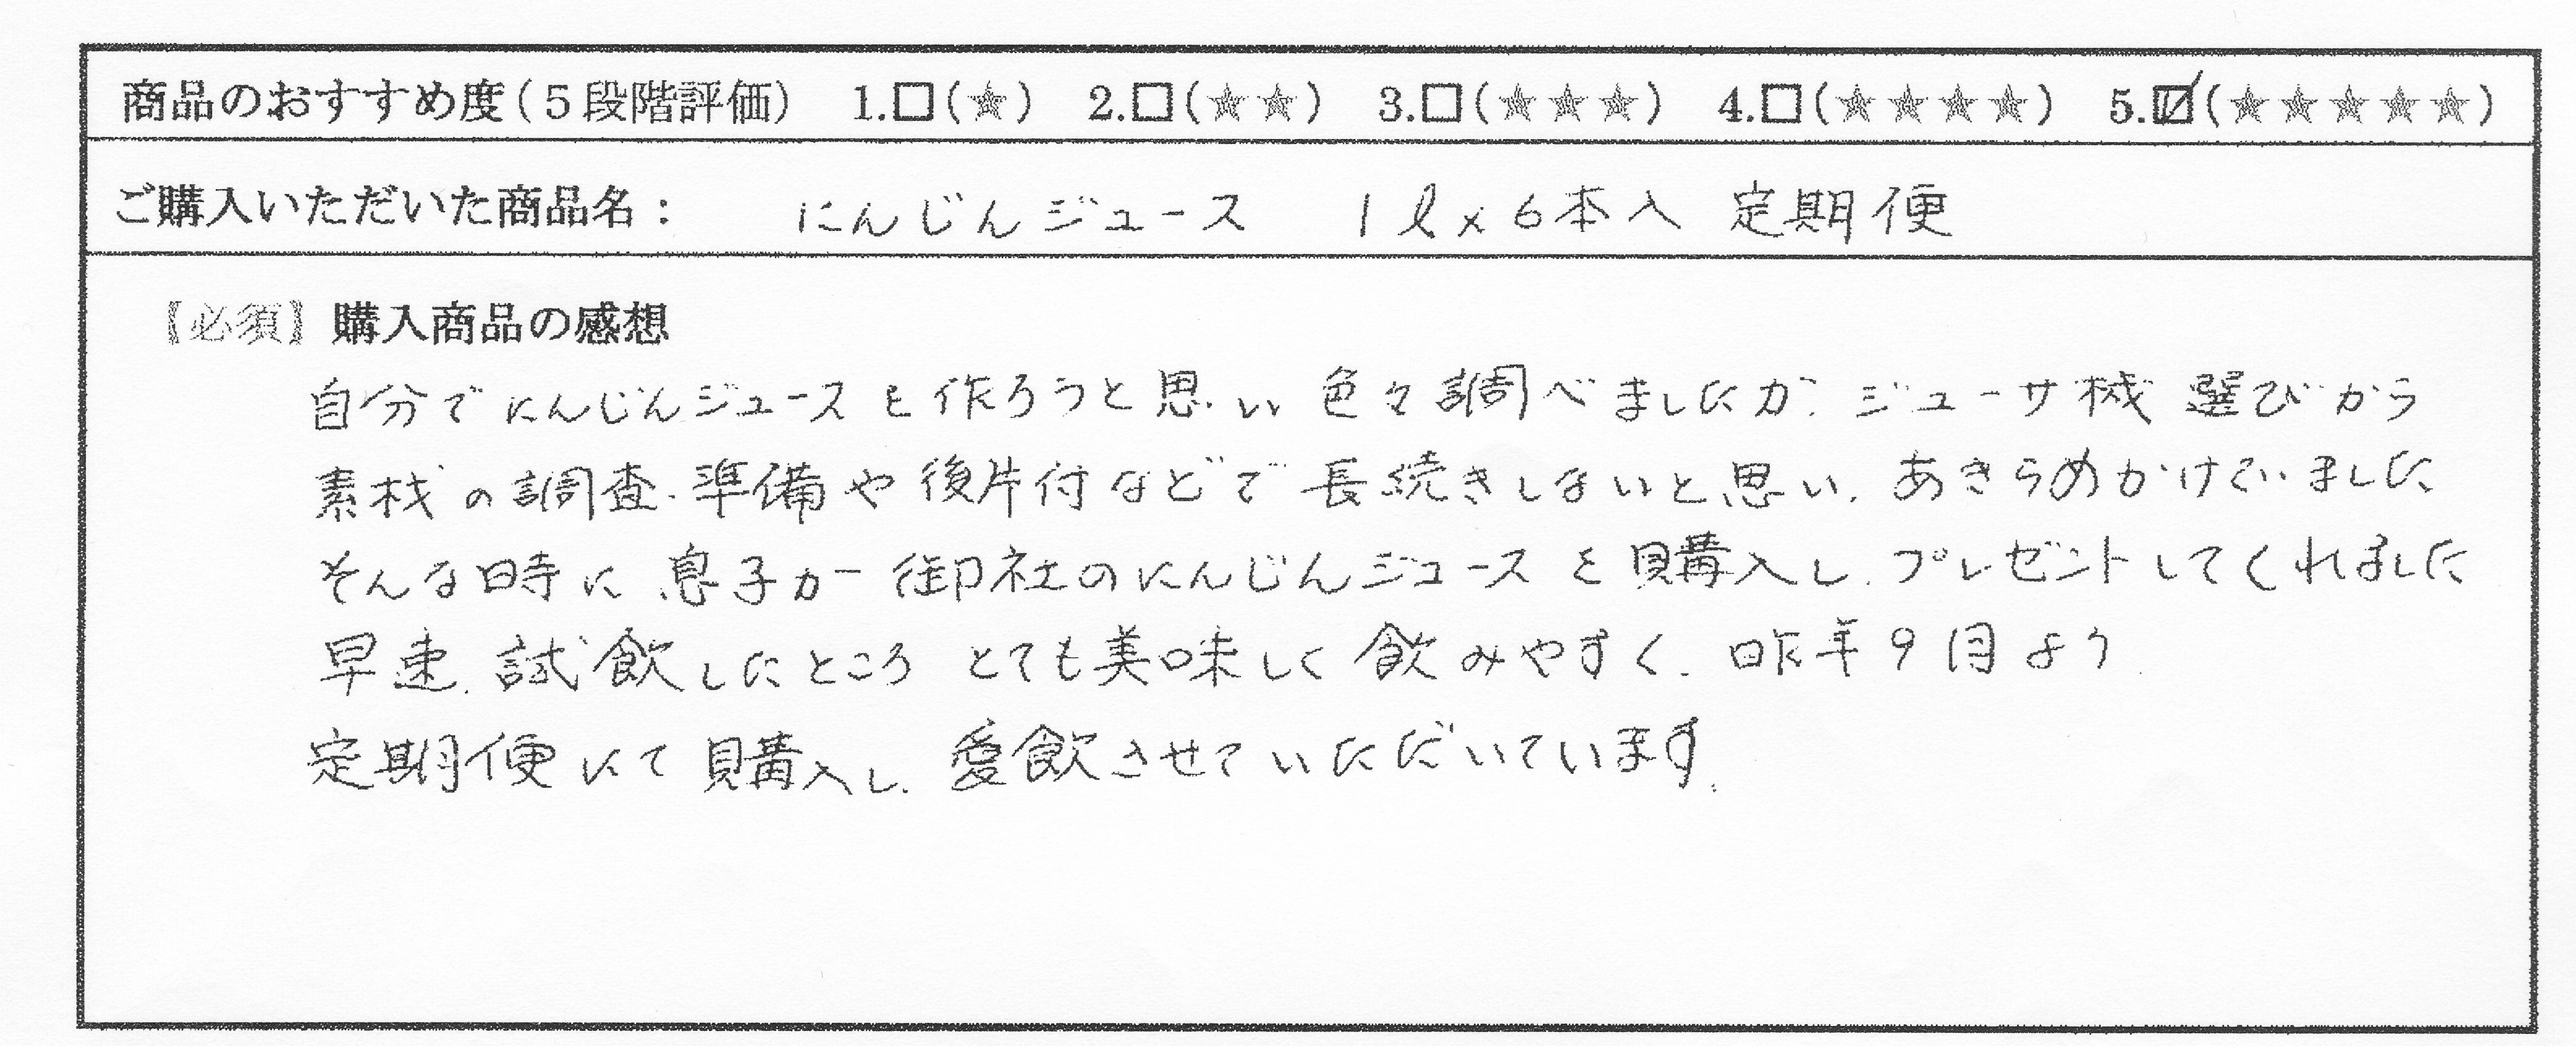 商品のおすすめ度（５段階評価） 1.□(★) 2.□(★★) 3.□(★★★) 4.□(★★★★) 5.☑(★★★★★)
ご購入いただいた商品名： にんじんジュース 1ℓ×6本入 定期便
【必須】購入商品の感想
自分でにんじんジュースを作ろうと思い 色々調べましたが、ジューサ機 選びから
素材の調査、準備や後片付などで長続きしないと思い、あきらめかけていました
そんな時に息子が 御社のにんじんジュースを購入し、プレゼントしてくれました
早速、試飲したところ とても美味しく飲みやすく、昨年9月より
定期便にて購入し、愛飲させていただいています。